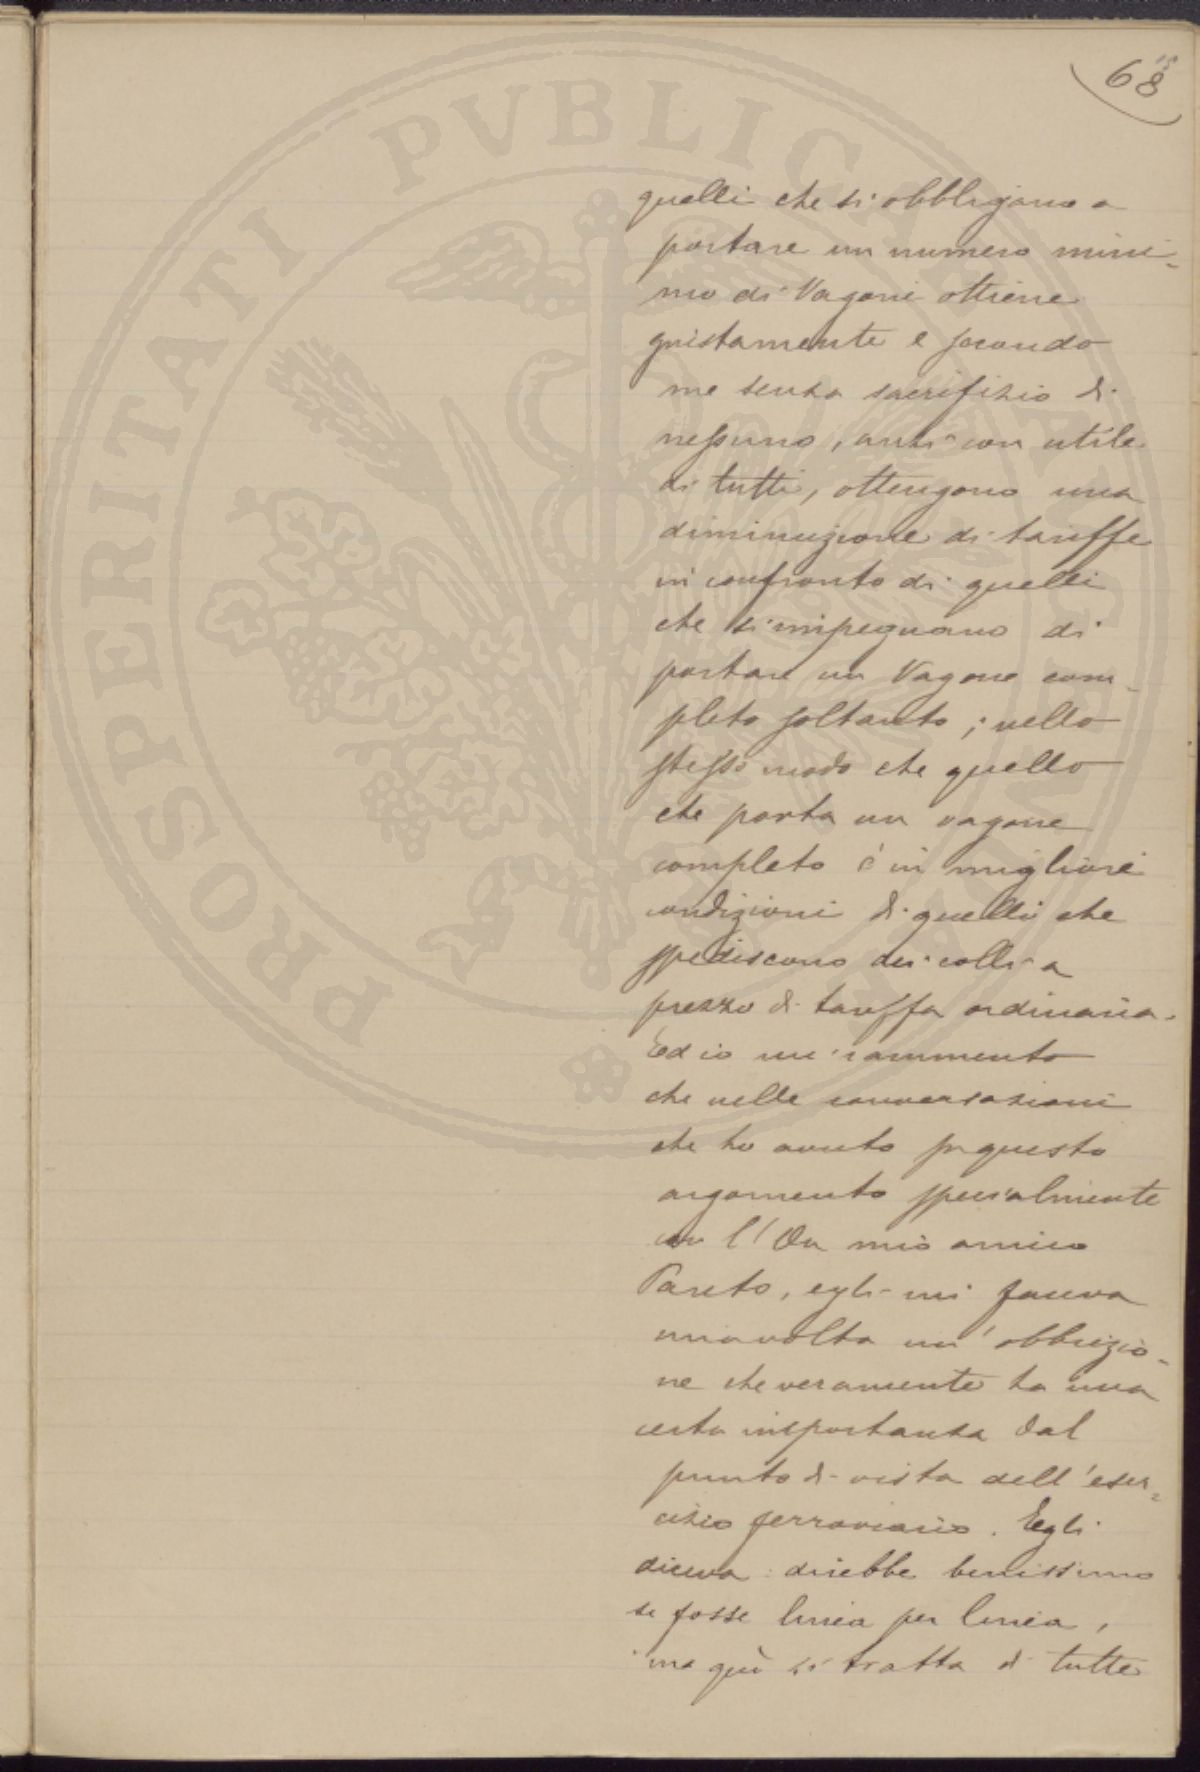 68
quelli che si obbligano a
portare un numero mini-
mo di Vagoni ottiene
giustamente e secondo
me senza sacrifizio di
nessuno, anzi con utile
di tutti, ottengono una
diminuzione di tariffe
in confronto di quelli
che s'impegnano di
portare un Vagone com-
pleto soltanto; nello
stesso modo che quello
che porta un vagone
completo è in migliori
condizioni di quelli che
spediscono dei colli a
prezzo di tariffa ordinaria.
Ed io mi rammento
che nelle conversazioni
che ho avuto su questo
argomento specialmente
con l'On mio amico
Pareto, egli mi faceva
una volta un'obbiezio-
ne che veramente ha una
certa importanza dal
punto di vista dell'eser-
cizio ferroviario. Egli
diceva: direbbe benissimo
se fosse linea per linea,
ma qui si tratta di tutte
PROSPERITATI PVBLICAE AVGENDAE